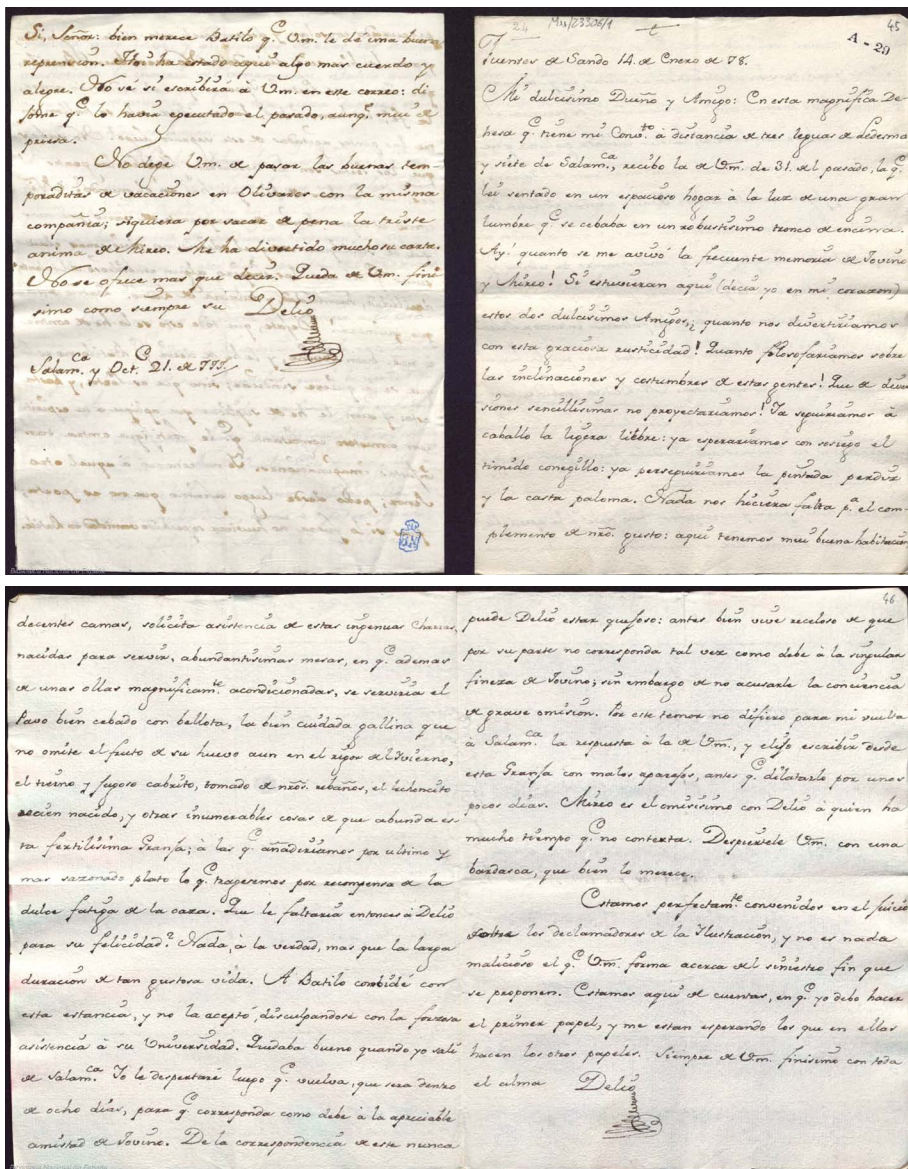 Si, Señor: bien merece Batilo q.e Vm. le dè una buena
reprension. Hoi ha estado aqui algo mas cuerdo y
alegre. No sé si escribirá à Vm. en este correo: di
jome q.e lo havia egecutado el pasado, aunq.e mui de
priesa.
No dege Vm. de pasar las buenas tem-
poraditas de vacaciones en Olivares con la misma
compañia; siquiera por sacar de pena la triste
anima de Mireo. Me ha divertido mucho su carta.
No se ofrece mas que decir. Queda de Vm. fini
simo como siempre su Delio
Salam.ca y Oct.e 21. de 777.
24 Mss/23306/1 45
A-29
Puentes de Sando 14. de Enero de 78.
Mi dulcisimo Dueño y Amigo: En esta magnifica De
hesa q.e tiene mi Conv.to à distancia de tres leguas de Ledesma
y siete de Salam.ca, recibo la de Vm. de 31. del pasado, la q.e
lei sentado en un espacioso hogar à la luz de una gran
lumbre q.e se cebaba en un robustisimo tronco de encina.
Ay! quanto se me avivó la frecuente memoria de Jovino
y Mireo! Si estuvieran aqui (decia yo en mi corazon)
estos dos dulcisimos Amigos, quanto nos divertiriamos
con esta graciosa rusticidad! Quanto filosofariamos sobre
las inclinaciones y costumbres de estas gentes! Que de diver
siones sencillisimas no proyectariamos! Ya seguiriamos à
caballo la ligera liebre: ya esperariamos con sosiego el
timido conegillo: ya perseguiriamos la pintada perdiz
y la casta paloma. Nada nos hiciera falta p.a el com-
plemento de nrõ. gusto: aqui tenemos mui buena habitacion
decentes camas, solicita asistencia de estas ingenuas Charras,
nacidas para servir, abundantisimas mesas, en q.e ademas
de unas ollas magnificam.te acondicionadas, se serviria el
Pavo bien cebado con bellota, la bien cuidada gallina que
no omite el fruto de su huevo aun en el rigor del Ivierno,
el tierno y jugoso cabrito, tomado de nrõs. rebaños, el lechoncito
recien nacido, y otras inumerables cosas de que abunda es-
ta fertilisima Granja; à las q.e añadiriamos por ultimo y
mas sazonado plato lo q.e tragesemos por recompensa de la
dulce fatiga de la caza. Que le faltaria entonces à Delio
para su felicidad? Nada, à la verdad, mas que la larga
duracion de tan gustosa vida. A Batilo combidé con
esta estancia, y no la aceptó, disculpandose con la forzosa
asistencia à su Universidad. Quedaba bueno quando yo sali
de Salam.ca Yo le despertaré luego q.e vuelva, que sera dentro
de ocho dias, para q.e corresponda como debe à la apreciable
amistad de Jovino. De la correspondencia de este nunca
46
puede Delio estar quejoso: antes bien vive receloso de que
por su parte no corresponda tal vez como debe à la singular
fineza de Jovino; sin embargo de no acusarle la conciencia
de grave omision. Por este temor no difiero para mi vuelta
à Salam.ca la respuesta à la de Vm., y elijo escribir desde
esta Granja con malos aparejos, antes q.e dilatarlo por unos
pocos dias. Mireo es el omisisimo con Delio à quien ha
mucho tiempo q.e no contexta. Despiertele Vm. con una
bardasca, que bien lo merece.
Estamos perfectam.te convenidos en el juicio
sobre los declamadores de la Ilustracion, y no es nada
malicioso el q.e Vm. forma acerca del siniestro fin que
se proponen. Estamos aqui de cuentas, en q.e yo debo hacer
el primer papel, y me estan esperando los que en ellas
hacen los otros papeles. Siempre de Vm. finisimo con toda
el alma Delio